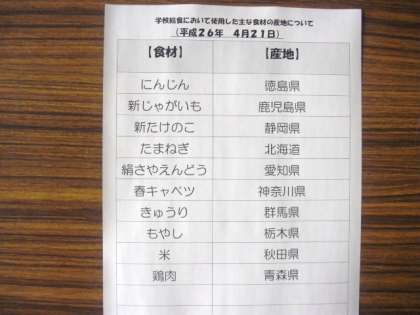 学校給食において使用した主な食材の産地について
（平成２６年　４月２１日）
【食材】　【産地】
にんじん　徳島県
新じゃがいも　鹿児島県
新たけのこ　静岡県
たまねぎ　北海道
絹さやえんどう　愛知県
春キャベツ　神奈川県
きゅうり　群馬県
もやし　栃木県
米　秋田県
鶏肉　青森県